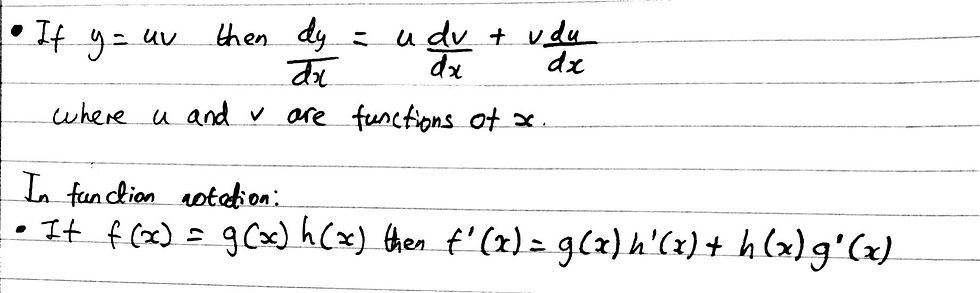 • If y = uv then dy/dx = u dv/dx + v du/dx
where u and v are functions of x.
In function notation:
• If f(x) = g(x) h(x) then f'(x) = g(x) h'(x) + h(x) g'(x)